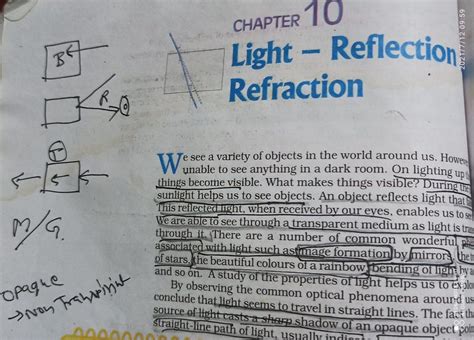 CHAPTER 10
Light – Reflection
Refraction
B
R
T
M/G.
opaque
→ Non
We see a variety of objects in the world around us. Howev
unable to see anything in a dark room. On lighting up
things become visible. What makes things visible? During the
sunlight helps us to see objects. An object reflects light that
This reflected light, when received by our eyes, enables us to
We are able to see through a transparent medium as light is tr
through it. There are a number of common wonderful
associated with light such as image formation by mirrors, the
of stars, the beautiful colours of a rainbow, bending of light by
and so on. A study of the properties of light helps us to explo
By observing the common optical phenomena around
conclude that light seems to travel in straight lines. The fact th
source of light casts a sharp shadow of an opaque object
straight-line path of light, usually
2021/7/12 09:59